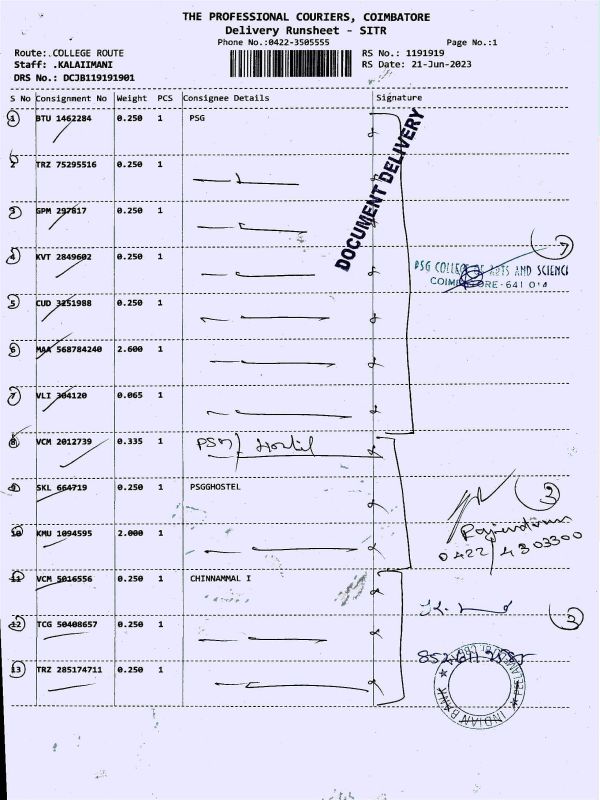 THE PROFESSIONAL COURIERS, COIMBATORE
Delivery Runsheet - SITR
Phone No.:0422-3505555 Page No.:1
Route:.COLLEGE ROUTE RS No.: 1191919
Staff: .KALAIIMANI RS Date: 21-Jun-2023
DRS No.: DCJB119191901
S No Consignment No Weight PCS Consignee Details Signature
1 BTU 1462284 0.250 1 PSG
2 TRZ 75295516 0.250 1
DOCUMENT DELIVERY
3 GPM 297817 0.250 1
4 KVT 2849602 0.250 1
7
PSG COLLEGE OF ARTS AND SCIENC
COIMBATORE-641 014
5 CUD 3251988 0.250 1
6 MAA 568784240 2.600 1
7 VLI 304120 0.065 1
8 VCM 2012739 0.335 1
9 SKL 664719 0.250 1 PSGGHOSTEL
3
10 KMU 1094595 2.000 1
0422/4303300
11 VCM 5016556 0.250 1 CHINNAMMAL I
12 TCG 50408657 0.250 1
13 TRZ 285174711 0.250 1
INDIAN BANK